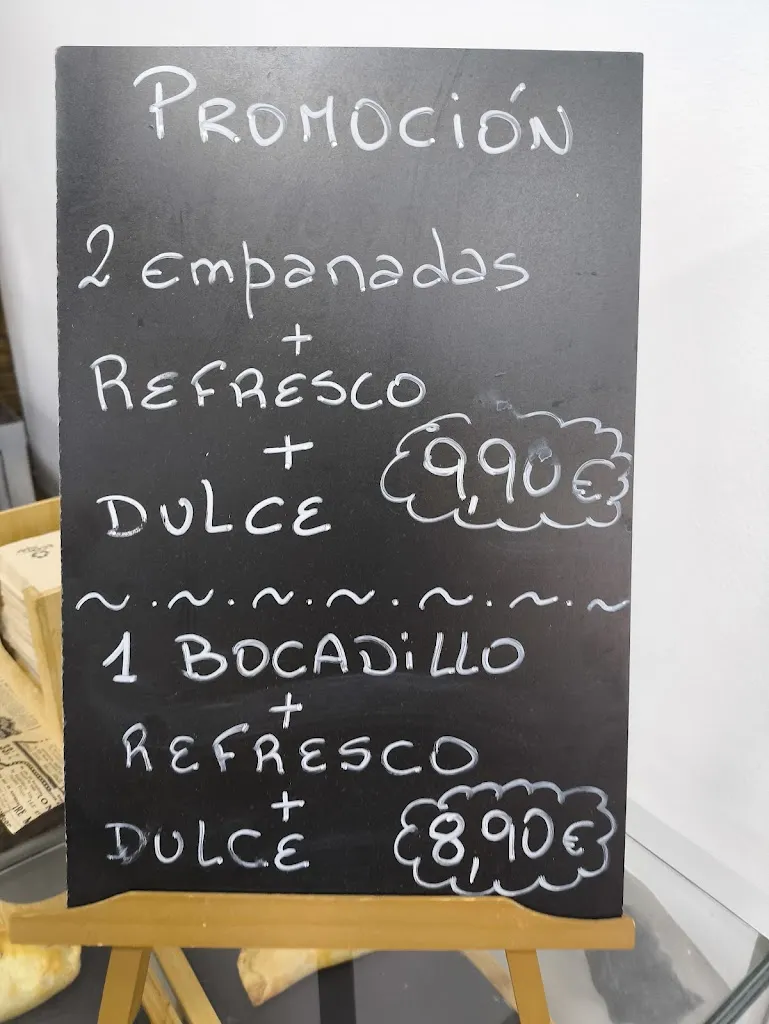 PROMOCIÓN
2 empanadas
+
REFRESCO
+
DULCE
9,90€
~.~.~.~.~.~.~
1 BOCADILLO
+
REFRESCO
+
DULCE
8,90€